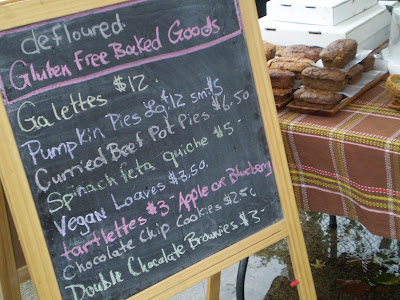 defloured
Gluten Free Baked Goods
Galettes $12.
Pumpkin Pies Lg $12 sm $5
Curried Beef Pot Pies $6.50
Spinach feta quiche $5-
Vegan Loaves $3.50.
tartlettes $3- Apple or Blueberry
Chocolate Chip Cookies $2.50
Double Chocolate Brownies $3-